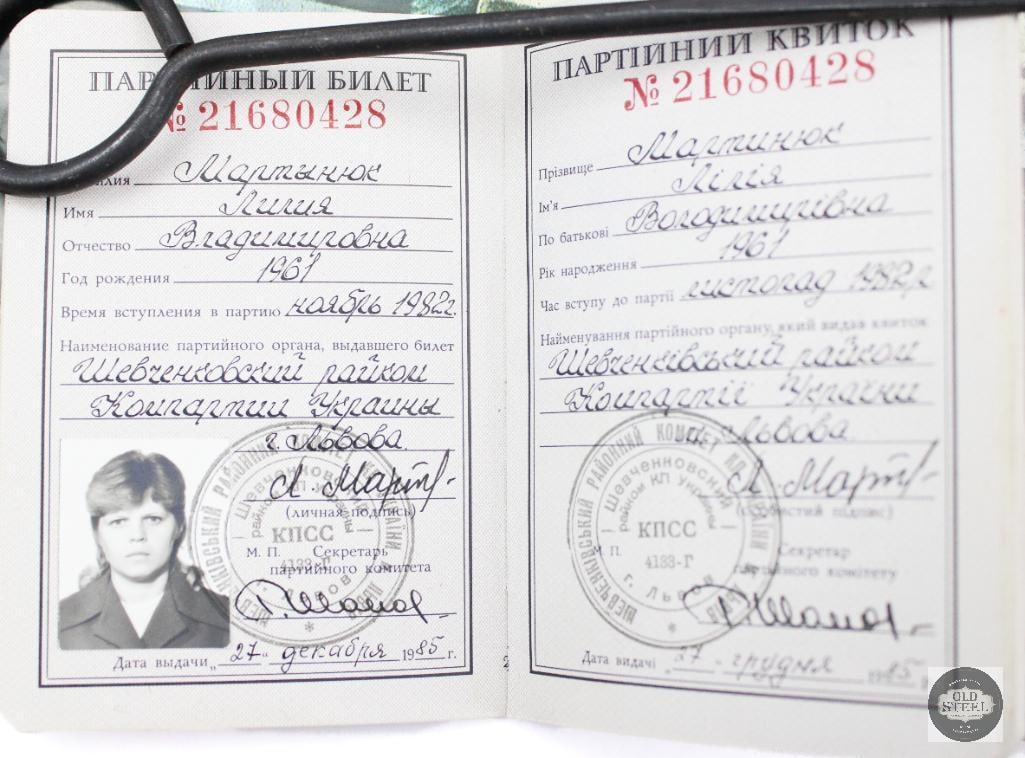 ПАРТИЙНЫЙ БИЛЕТ
№ 21680428
Мартынюк
Имя Лилия
Отчество Владимировна
Год рождения 1961
Время вступления в партию ноябрь 1982г.
Наименование партийного органа, выдавшего билет
Шевченковский райком
Компартии Украины
г. Львова
Л. Март
(личная подпись)
М. П. Секретарь
партийного комитета
Дата выдачи „27“ декабря 1985 г.
ШЕВЧЕНКІВСЬКИЙ РАЙОННИЙ КОМІТЕТ КП УКРАЇНИ
Шевченковский
райком КП Украины
КПСС
4133-Г
г. Львов
ПАРТІЙНИЙ КВИТОК
№ 21680428
Прізвище Мартинюк
Ім'я Лілія
По батькові Володимирівна
Рік народження 1961
Час вступу до партії листопад 1982 р
Найменування партійного органу, який видав квиток
Шевченківський райком
Компартії України
Львова
Л. Март
(особистий підпис)
М. П. Секретар
партійного комітету
Дата видачі 27 грудня 1985
ШЕВЧЕНКІВСЬКИЙ РАЙОННИЙ КОМІТЕТ КП УКРАЇНИ
Шевченковский
райком КП Украины
КПСС
4133-Г
г. Львов
OLD
STEEL